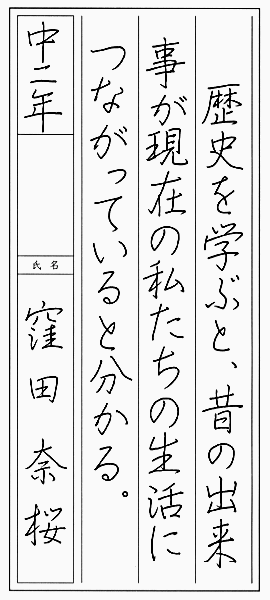 歴史を学ぶと、昔の出来
事が現在の私たちの生活に
つながっていると分かる。
中二年
氏名
窪田奈桜